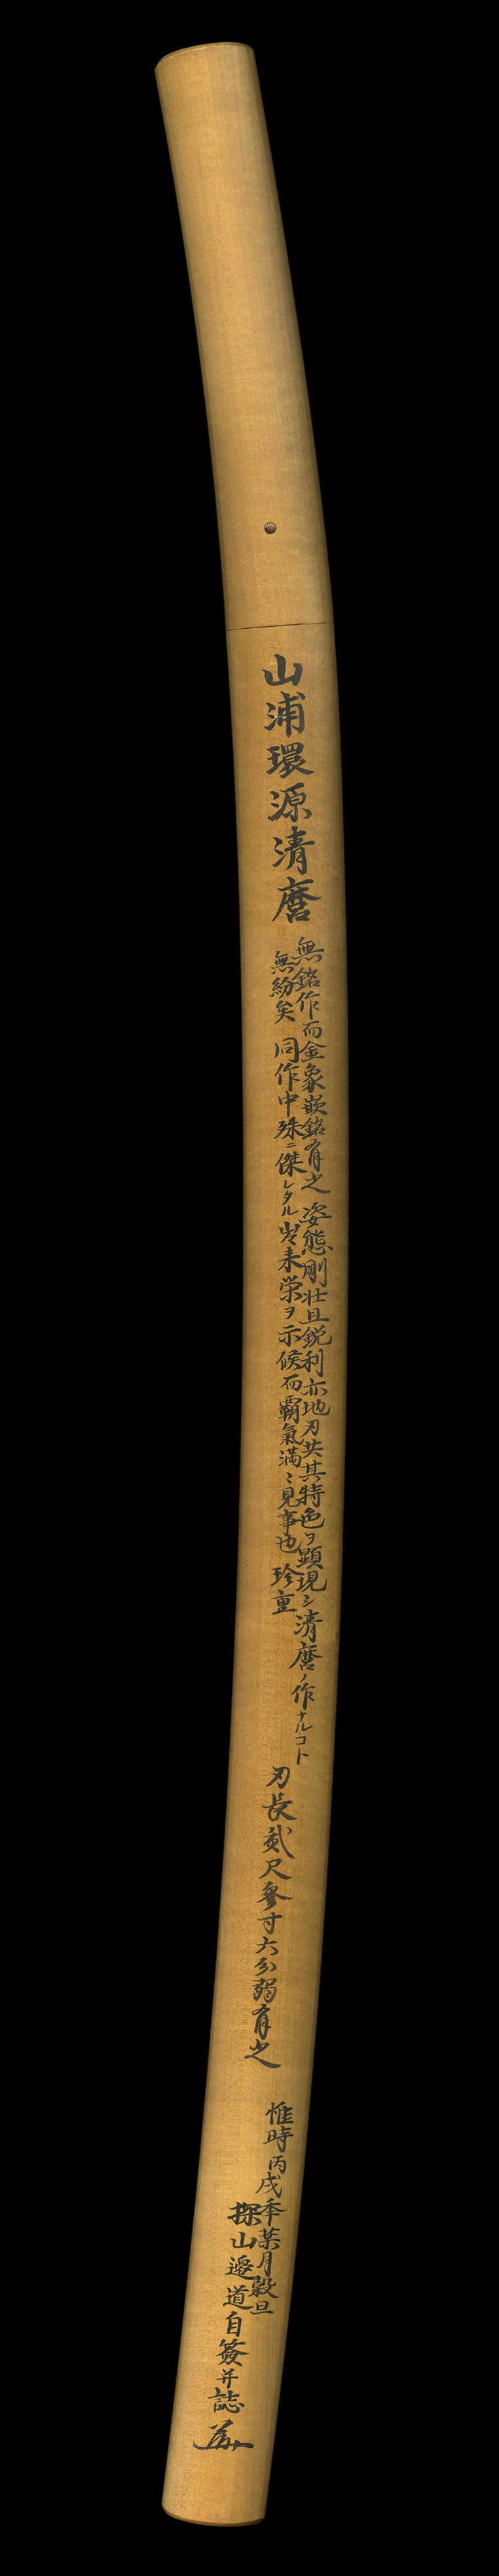 山浦環源清麿
無銘作而金象嵌銘有之 姿態剛壮且鋭利亦地刃共其特色ヲ顕現シ清麿ノ作ナルコト
無紛矣 同作中殊ニ傑レタル出来栄ヲ示候而覇氣満々見事也 珍重
刃長貳尺参寸六分弱有之
惟時丙戌年葉月穀旦
探山邉道自簽并誌